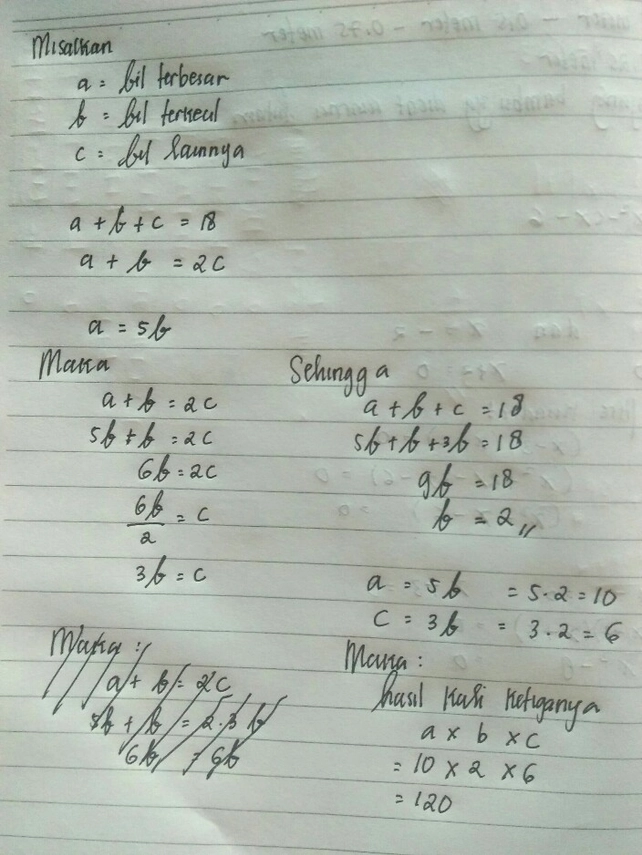 Misalkan
a = bil terbesar
b = bil terkecil
c = bil lainnya
a + b + c = 18
a + b = 2c
a = 5b
Maka
a + b = 2c
5b + b = 2c
6b = 2c
6b/2 = c
3b = c
Maka :
a + b = 2c
5b + b = 2.3b
6b = 6b
Sehingga
a + b + c = 18
5b + b + 3b = 18
9b = 18
b = 2,,
a = 5b = 5.2 = 10
c = 3b = 3.2 = 6
Maka :
hasil kali ketiganya
a x b x c
= 10 x 2 x 6
= 120